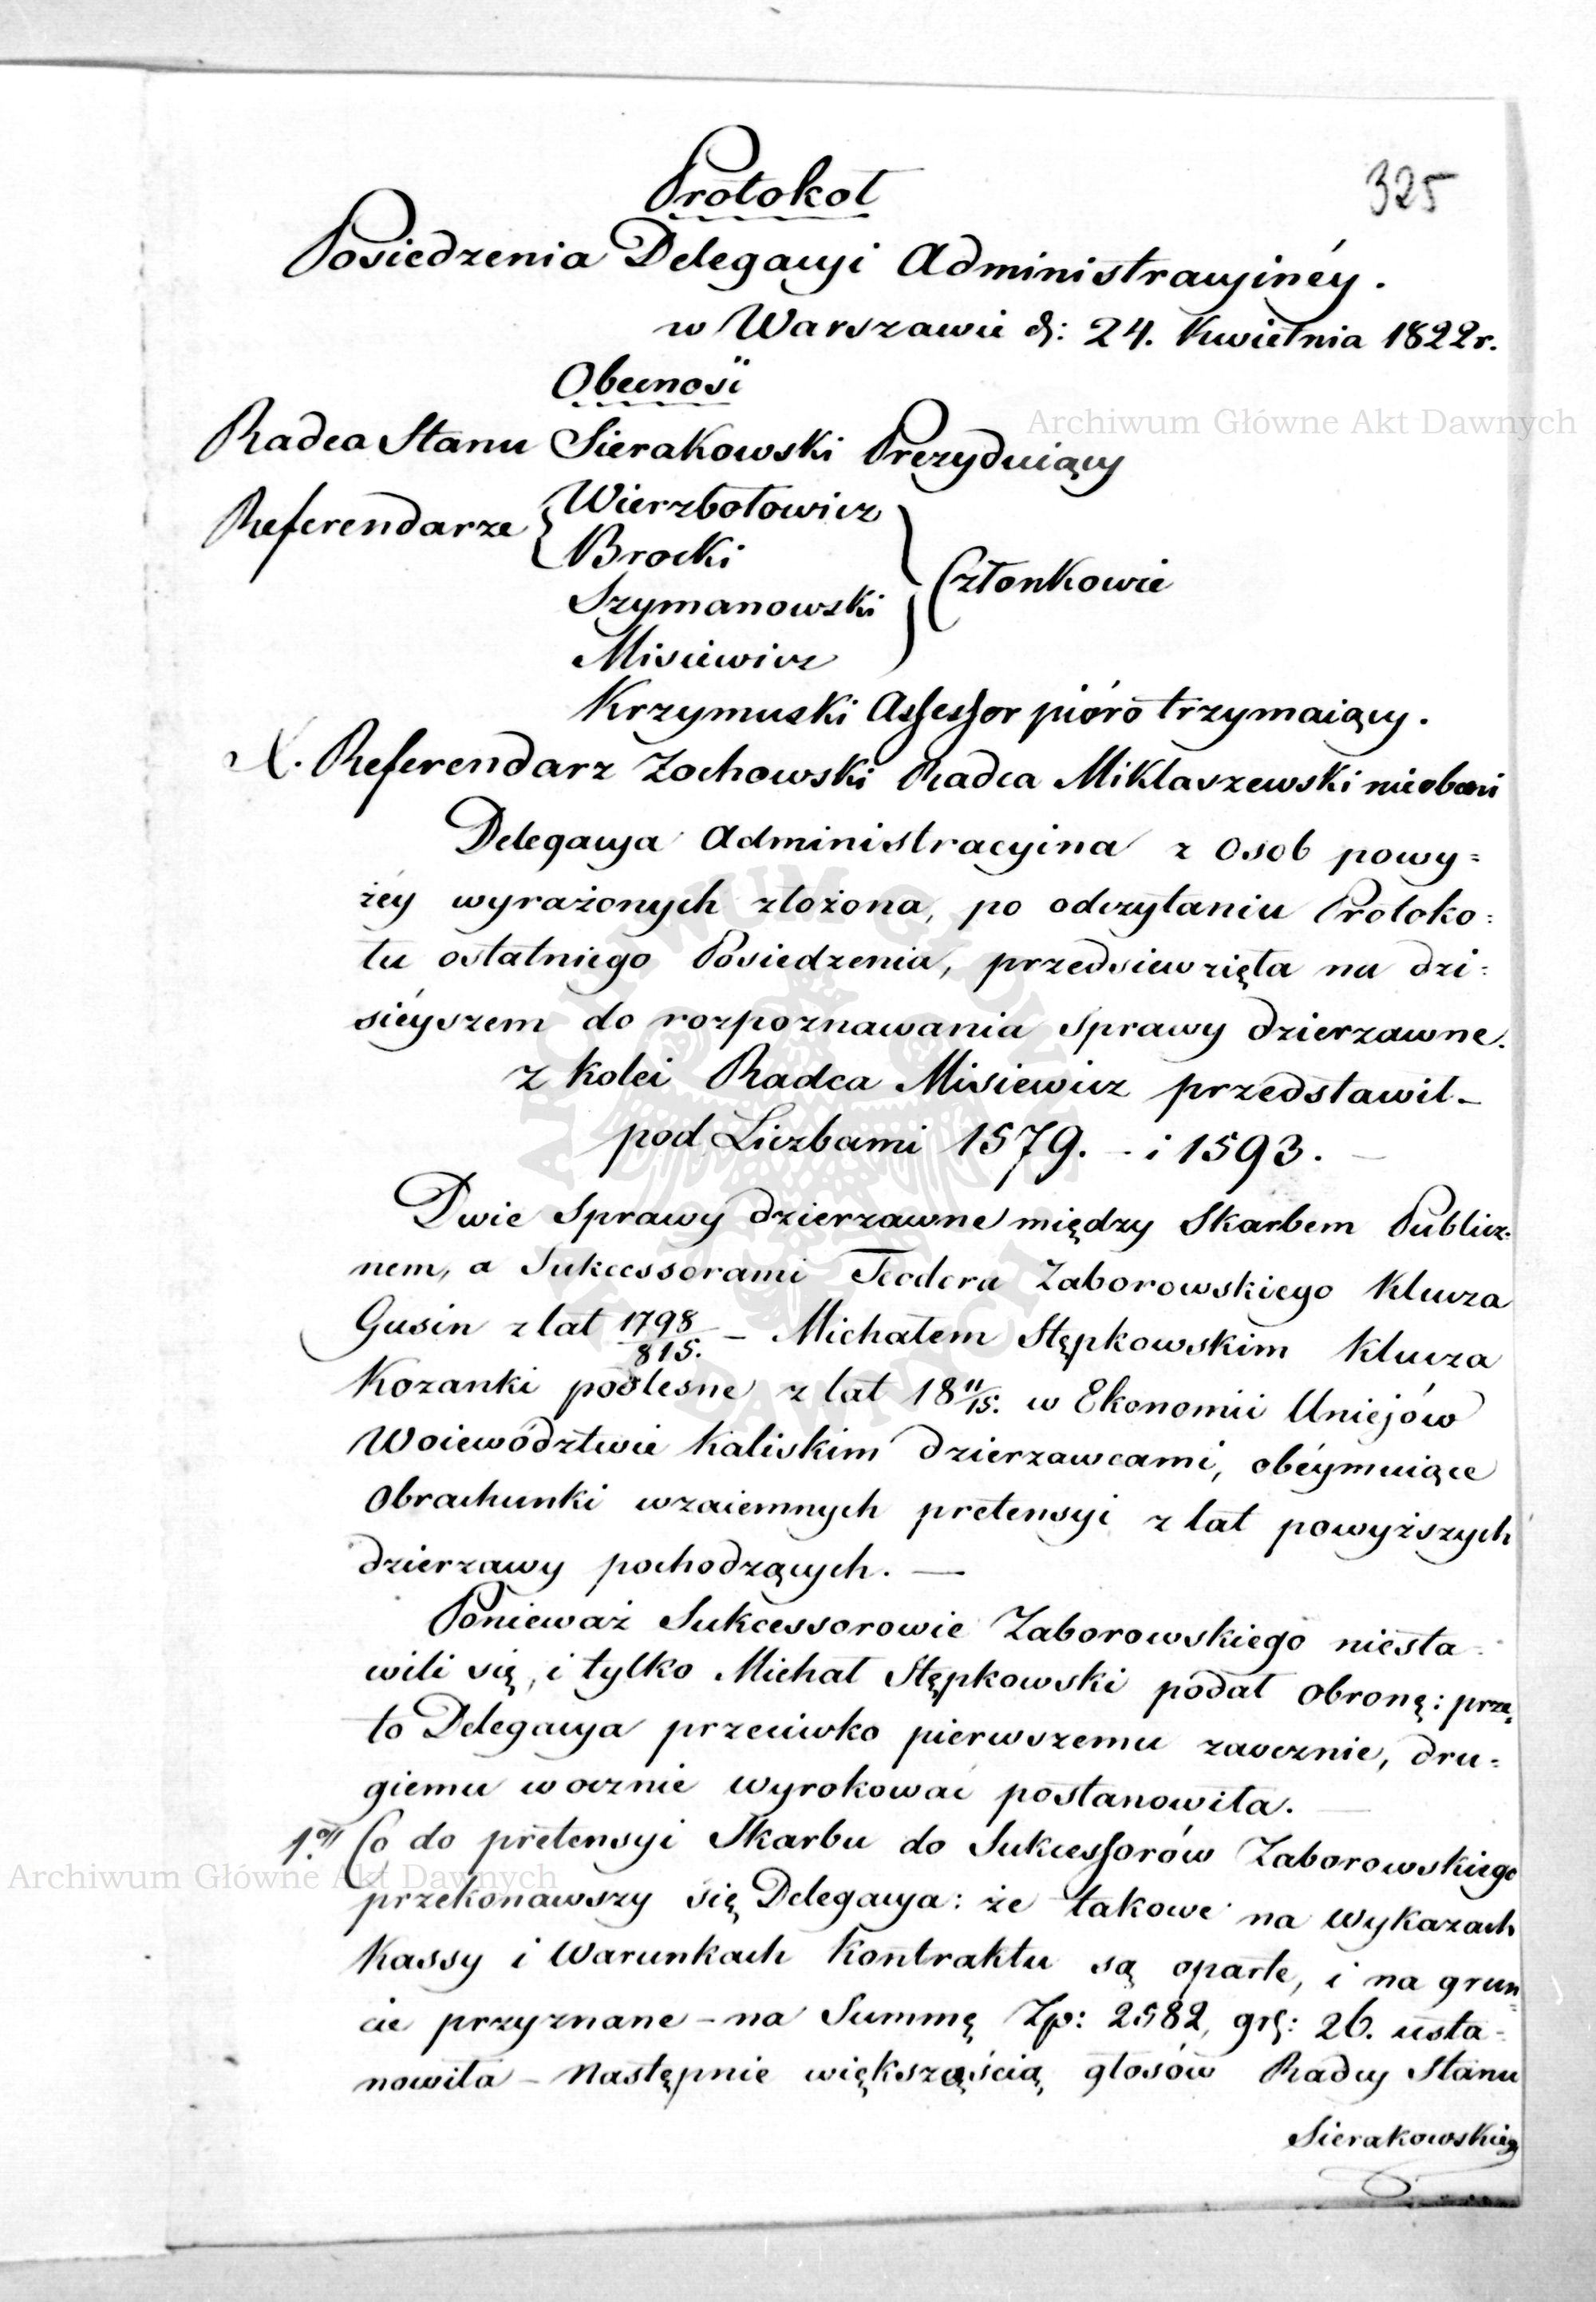 325
Protokoł
Posiedzenia Delegacyi Administracyinéy.
w Warszawie d: 24. Kwietnia 1822 r.
Obecność
Radca Stanu Sierakowski Prezyduiący
Referendarze Wierzbołowicz
Brocki
Szymanowski
Członkowie
Misiewicz
Krzymuski Assessor pióro trzymaiący.
X. Referendarz Zochowski Radca Miklaszewski nieobecni
Delegacya Administracyina z Osob powy=
żéy wyrażonych złożona, po odczytaniu Protoko=
łu ostatniego Posiedzenia, przedsiewzięła na dzi=
siéyszem do rozpoznawania Sprawy dzierzawne.
z kolei Radca Misiewicz przedstawił -
pod Liczbami 1579. - i 1593. -
Dwie Sprawy dzierzawne między Skarbem Publicz=
nem, a Sukcessorami Teodora Zaborowskiego Klucza
Gusin z lat 1798/815. - Michałem Stępkowskim Klucza
Kozanki podlesne z lat 18 11/15. w Ekonomii Uniejów
Woiewództwie Kaliskim dzierzawcami, obéymuiące
Obrachunki wzaiemnych pretensyi z lat powyższych
dzierzawy pochodzących. —
Ponieważ Sukcessorowie Zaborowskiego niesta=
wili się, i tylko Michał Stępkowski podał obronę: prze=
to Delegacya przeciwko pierwszemu zaocznie, dru=
giemu w ocznie wyrokować postanowiła. —
1.o Co do pretensyi Skarbu do Sukcessorów Zaborowskiego
przekonawszy się Delegacya: że takowe na Wykazach
Kassy i Warunkach Kontraktu są oparte, i na grun=
cie przyznane - na Summę Zp: 2582, gr: 26. usta=
nowiła - Następnie większością głosów Radcy Stanu
Sierakowskieg
Archiwum Główne Akt Dawnych
Archiwum Główne Akt Dawnych
ARCHIWUM GŁÓWNE AKT DAWNYCH